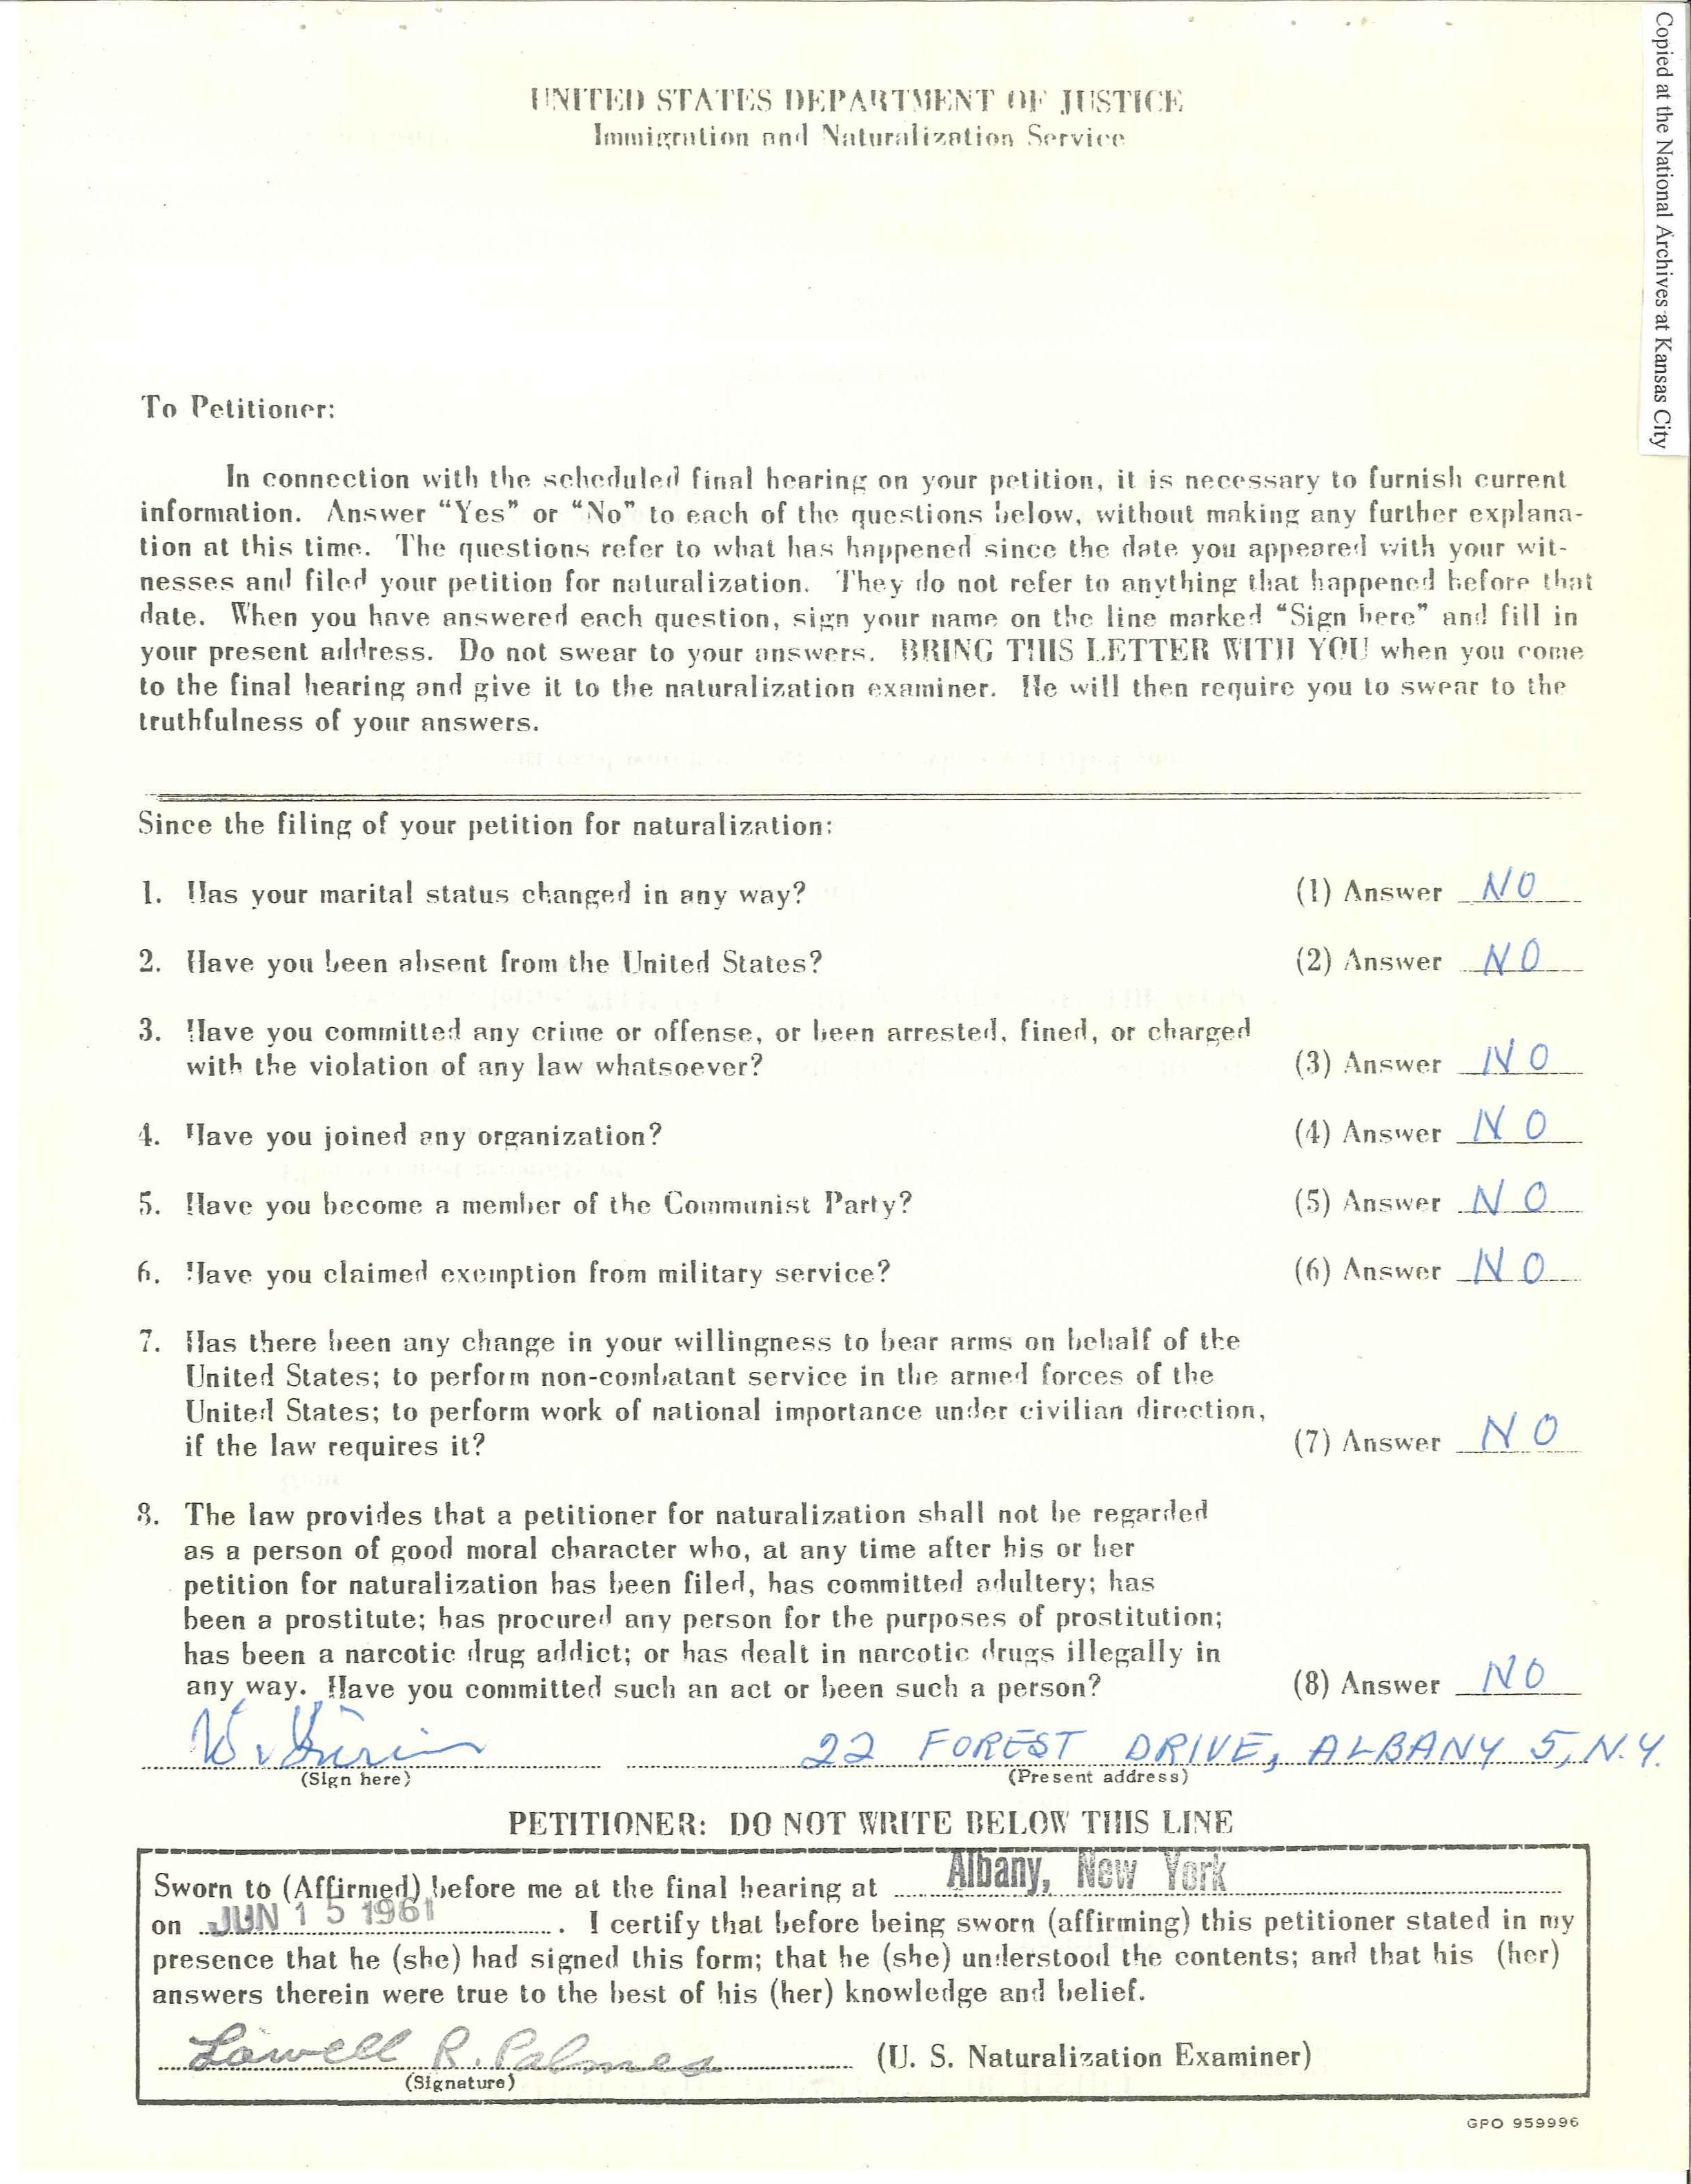 Copied at the National Archives at Kansas City
UNITED STATES DEPARTMENT OF JUSTICE
Immigration and Naturalization Service
To Petitioner:
In connection with the scheduled final hearing on your petition, it is necessary to furnish current
information. Answer “Yes” or “No” to each of the questions below, without making any further explana-
tion at this time. The questions refer to what has happened since the date you appeared with your wit-
nesses and filed your petition for naturalization. They do not refer to anything that happened before that
date. When you have answered each question, sign your name on the line marked “Sign here” and fill in
your present address. Do not swear to your answers. BRING THIS LETTER WITH YOU when you come
to the final hearing and give it to the naturalization examiner. He will then require you to swear to the
truthfulness of your answers.
Since the filing of your petition for naturalization:
1. Has your marital status changed in any way? (1) Answer NO
2. Have you been absent from the United States? (2) Answer NO
3. Have you committed any crime or offense, or been arrested, fined, or charged
with the violation of any law whatsoever? (3) Answer NO
4. Have you joined any organization? (4) Answer NO
5. Have you become a member of the Communist Party? (5) Answer NO
6. Have you claimed exemption from military service? (6) Answer NO
7. Has there been any change in your willingness to bear arms on behalf of the
United States; to perform non-combatant service in the armed forces of the
United States; to perform work of national importance under civilian direction,
if the law requires it? (7) Answer NO
8. The law provides that a petitioner for naturalization shall not be regarded
as a person of good moral character who, at any time after his or her
petition for naturalization has been filed, has committed adultery; has
been a prostitute; has procured any person for the purposes of prostitution;
has been a narcotic drug addict; or has dealt in narcotic drugs illegally in
any way. Have you committed such an act or been such a person? (8) Answer NO
22 FOREST DRIVE, ALBANY 5, N.Y.
(Sign here) (Present address)
PETITIONER: DO NOT WRITE BELOW THIS LINE
Sworn to (Affirmed) before me at the final hearing at Albany, New York
on JUN 15 1961. I certify that before being sworn (affirming) this petitioner stated in my
presence that he (she) had signed this form; that he (she) understood the contents; and that his (her)
answers therein were true to the best of his (her) knowledge and belief.
Lowell R. Palmer (U. S. Naturalization Examiner)
(Signature)
GPO 959996